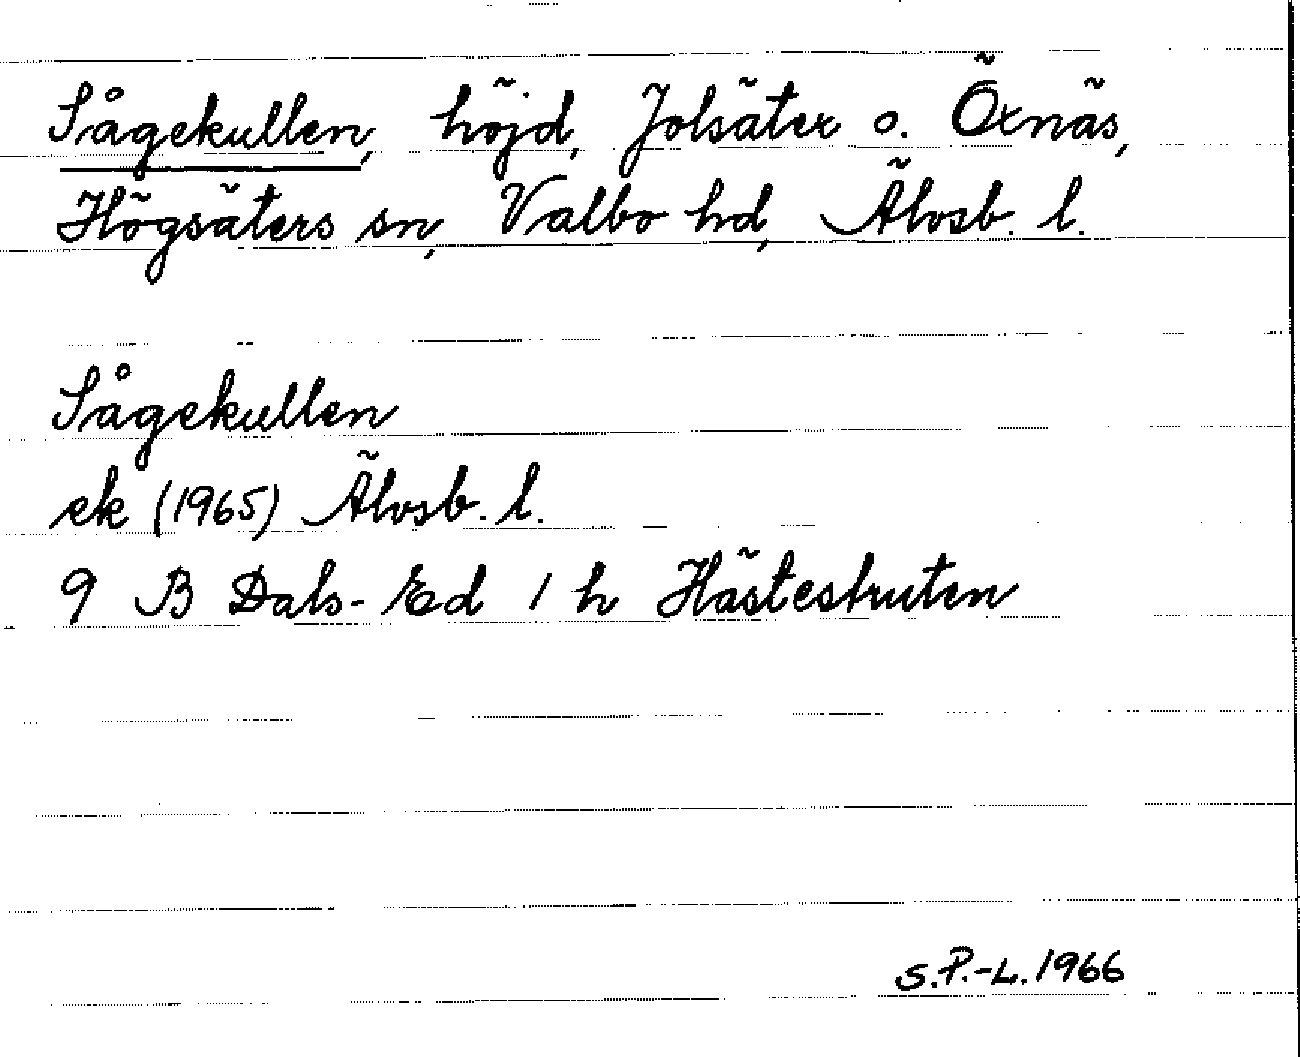 Sågekullen, höjd, Jolsäter o. Öxnäs,
Högsäters sn, Valbo hd, Älvsb. l.
Sågekullen
ek (1965) Älvsb. l.
9 B Dals-Ed 1 h Hästestruten
S.P.-L. 1966